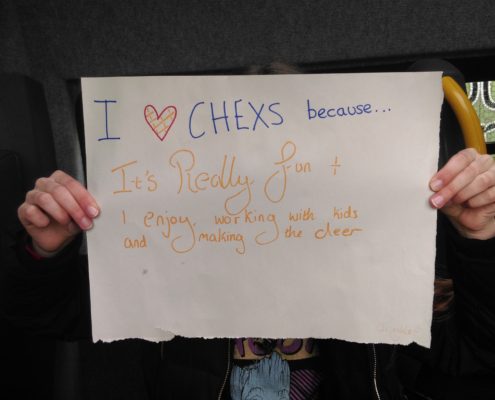 I ❤ CHEXS because...
It's Really fun +
I enjoy working with kids
and making the deer